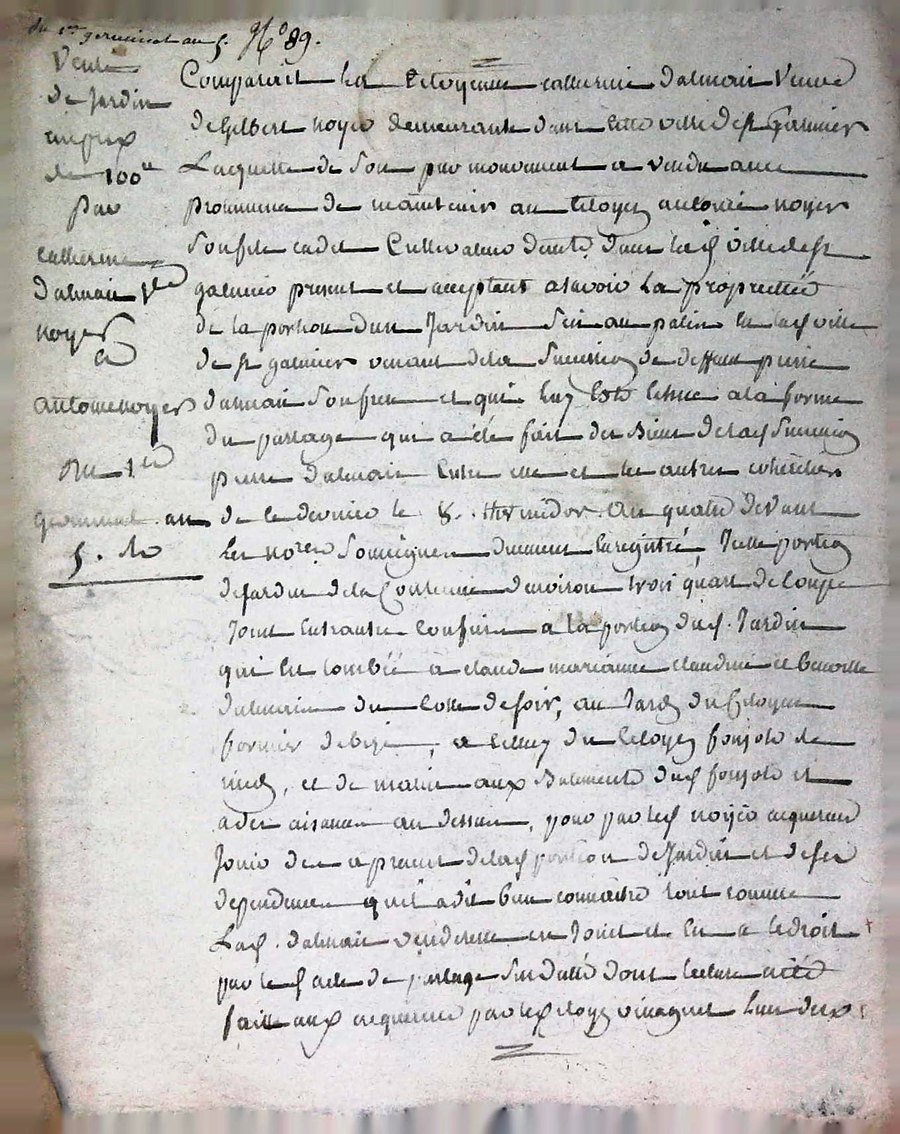 du 1er germinal an 5. N° 89.
Vente
de Jardin
au prix
de 100ll
par
catherine
dalmais Ve
noyer
a
antoine noyer
Du 1er
germinal an
5.
Comparait La Citoyenne catherine dalmais Veuve
de gilbert noyer demeurante dans cette ville de st galmier
Laquelle de Son pur mouvement a vendu avec
promesse de maintenir au Citoyen antoine noyer
Son fils cadet Cultivateur dans la de ville de st
galmier present et acceptant asavoir La proprietté
de la portion d'un Jardin Sis au palin en lad ville
de st galmier venant dela Succession de deffunt pierre
dalmais Son frere et qui luy est echue ala forme
du partage qui a été fait des Biens delad Succession
pierre dalmais Entre elle et les autres cohéritiers
de ce dernier le 8. thermidor an quatre devant
Les nores Soussignes duement Enregistré, Icelle portion
de Jardin dela Contenue denviron trois quart de Coupe
Joint Entrautre Confins a la portion dud. Jardin
qui est tombée a claude marianne claudine et benoitte
dalmais du Cotté de soir, au Jardin du Citoyen
fornier de bize, a celuy du Citoyen fonjols de
midy, et de matin aux Batiments dud fonjols et
a des aisances au dessus, pour par led noyer acquereur
Jouir des apresent delad portion de Jardin et de ses
dependances quil a dit bien connaitre tout comme
Lad. dalmais venderesse en Jouit et en a le droit
par led acte de partage Sus datté dont lecture a été
faitte aux acquereur par led citoyen vinagnet L'un deux